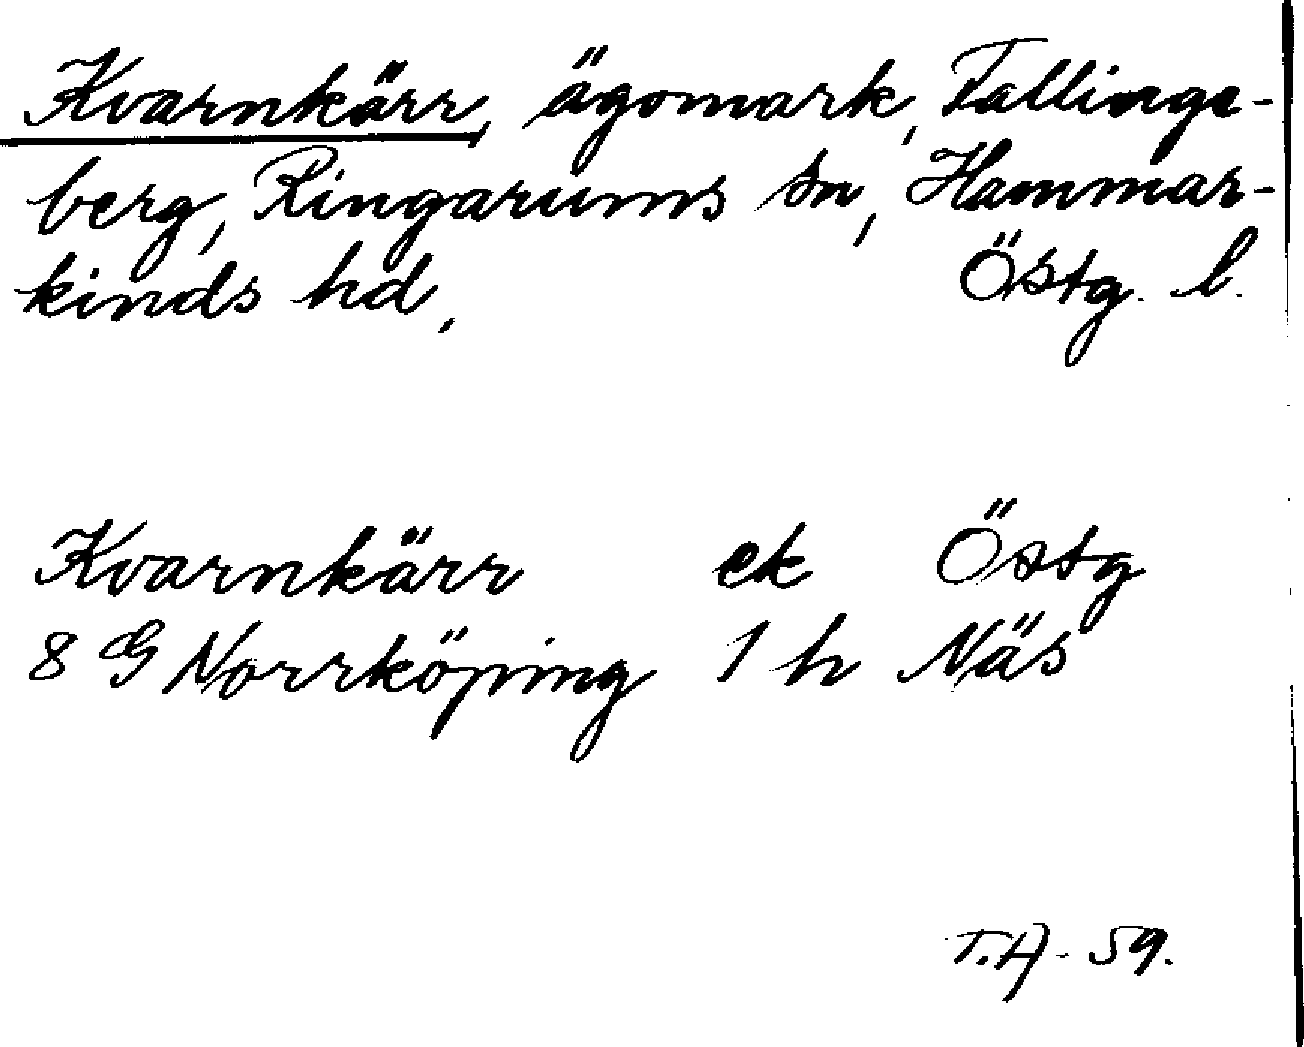 Kvarnkärr, ägomark, Fallinge-
berg, Ringarums sn, Hammar-
kinds hd, Östg. l.
Kvarnkärr ek Östg
8 G Norrköping 1 h Näs
T.A. 59.